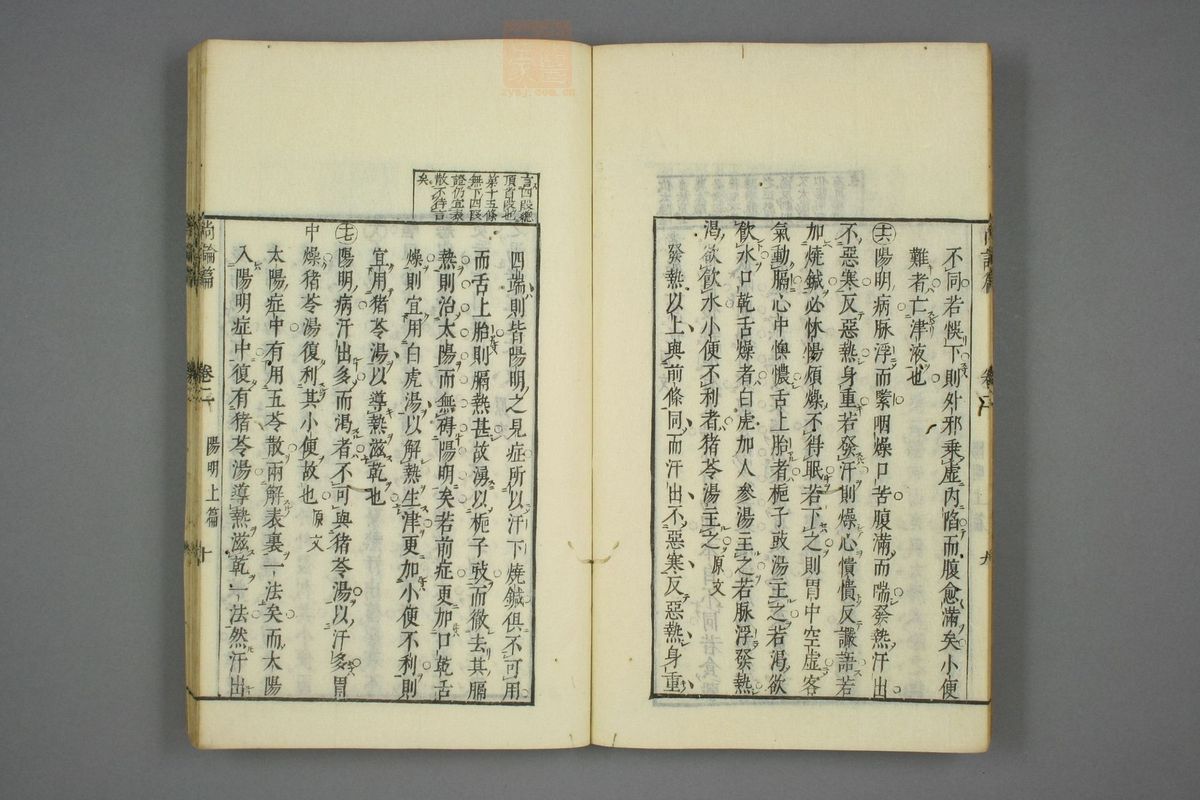 不同若悞下則外邪乘虛內陷而腹愈滿矣小便
難者亡津液也
㊅陽明病脉浮而緊咽燥口苦腹滿而喘發熱汗出
不惡寒反惡熱身重若發汗則燥心憒憒反譫語若
加燒鍼必怵惕煩燥不得眠若下之則胃中空虛客
氣動膈心中懊憹舌上胎者梔子豉湯主之若渴欲
飮水口乾舌燥者白虎加人參湯主之若脉浮發熱
渴欲飮水小便不利者猪苓湯主之原文
發熱以上與前條同而汗出不惡寒反惡熱身重
九
言四段總
頂首段也
第十五條
無下四段
證仍宜表
散不待言
矣
四端則皆陽明之見症所以汗下燒鍼俱不可用
而舌上胎則膈熱甚故湧以梔子豉而徹去其膈
熱則治太陽而無礙陽明矣若前症更加口乾舌
燥則宜用白虎湯以解熱生津更加小便不利則
宜用猪苓湯以導熱滋乾也
十七陽明病汗出多而渴者不可與猪苓湯以汗多胃
中燥猪苓湯復利其小便故也原文
太陽症中有用五苓散兩解表裏一法矣而太陽
入陽明症中復有猪苓湯導熱滋乾一法然汗出
尚論篇 卷二 陽明上篇 十
zysj.com.cn